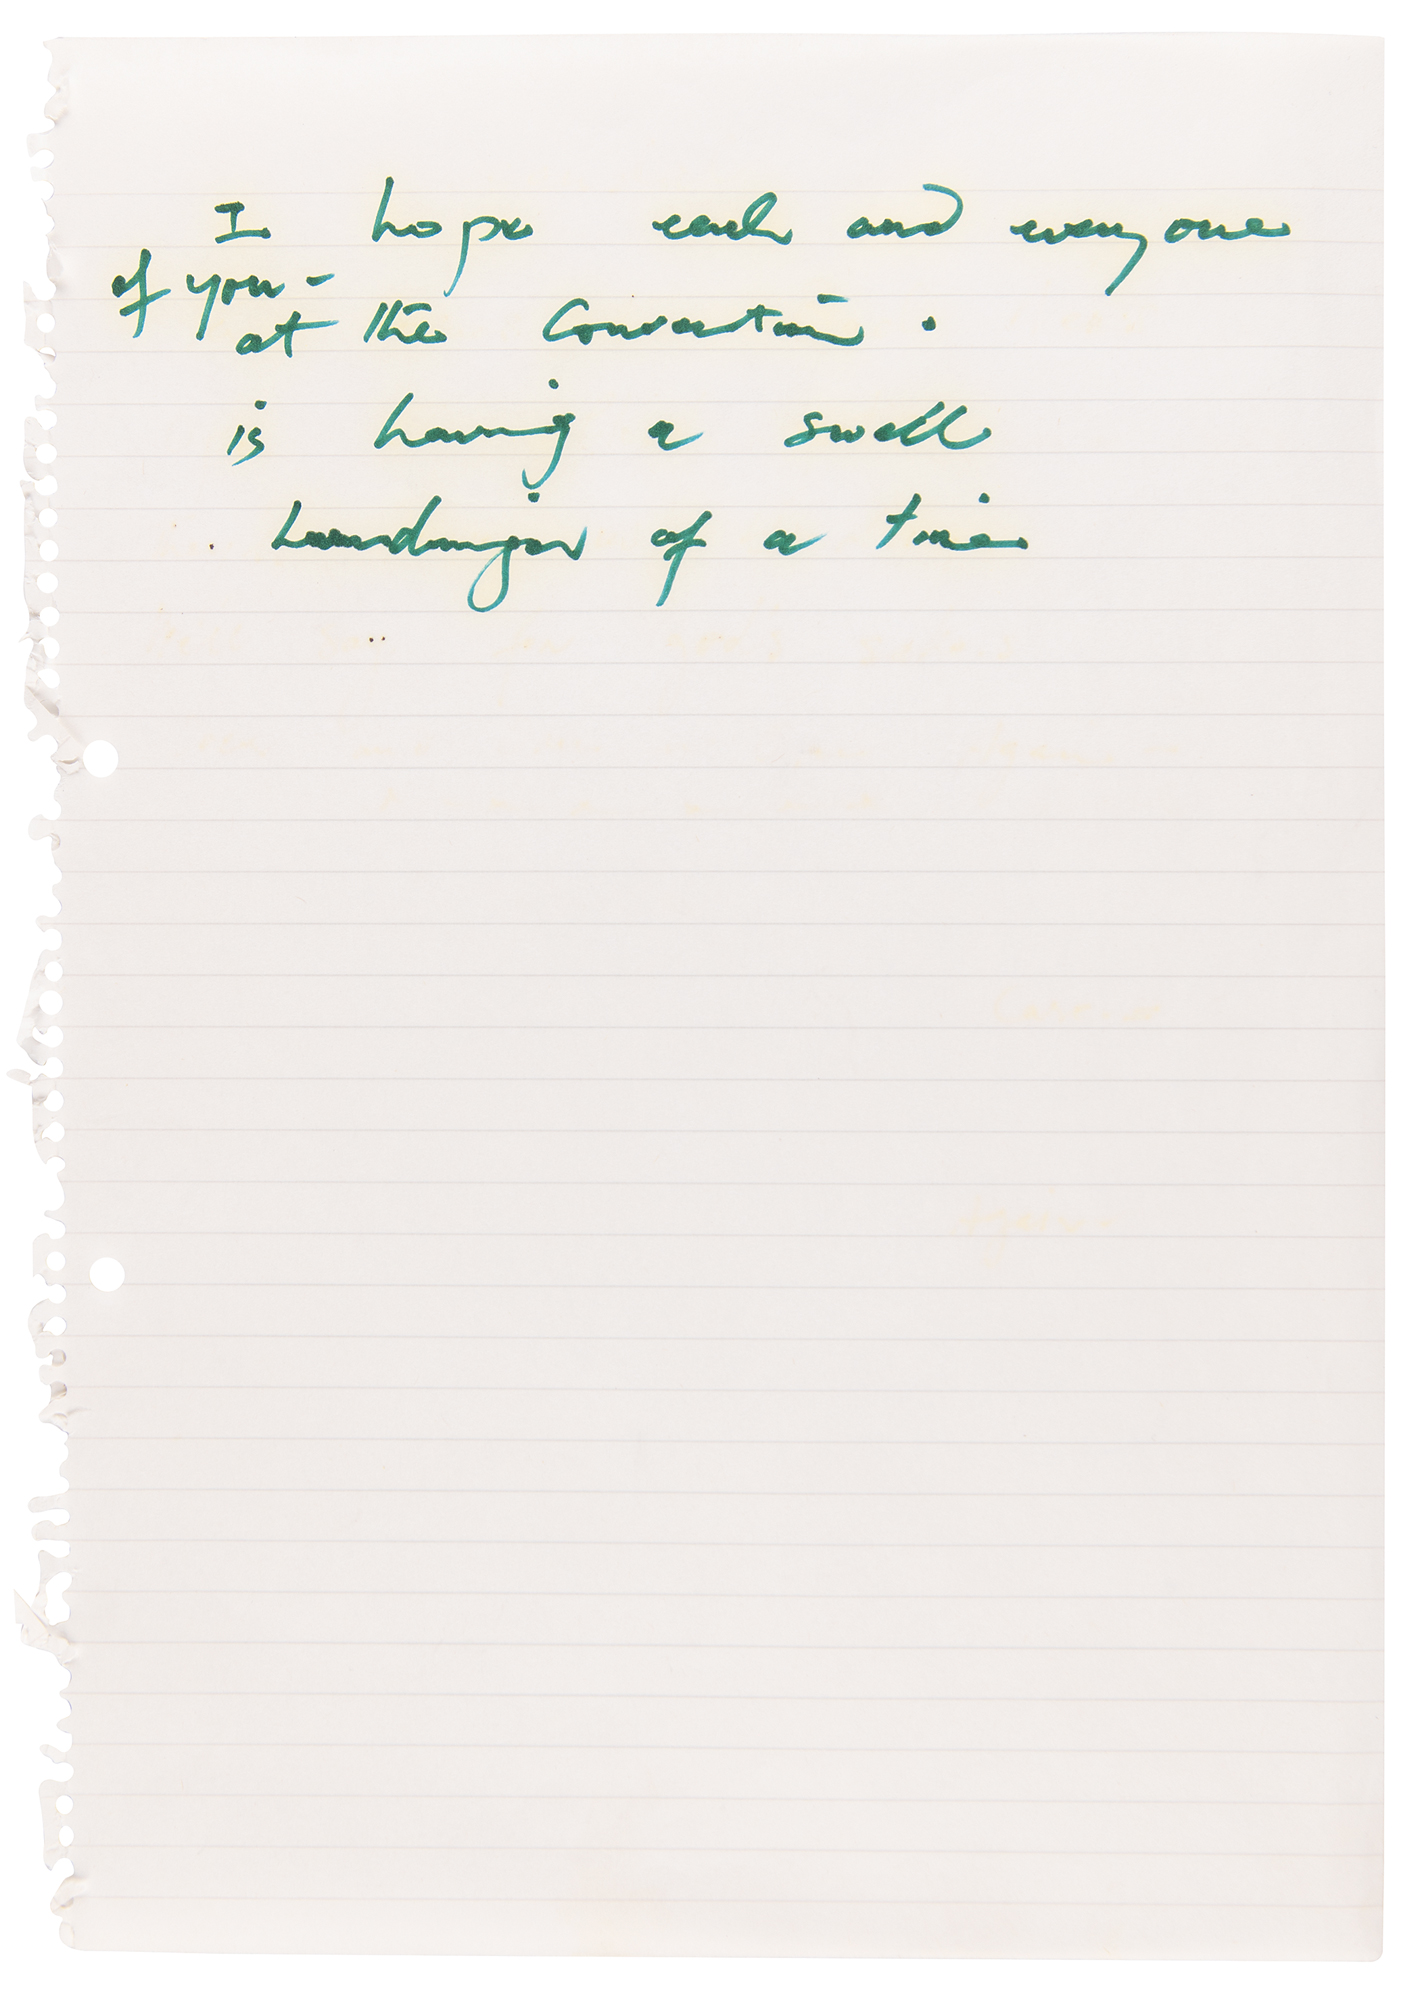 I hope each and every one
of you -
at the Convention .
is having a swell
humdinger of a time